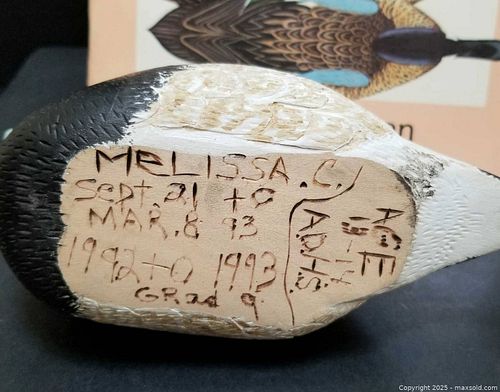 MeLISSA.C.
Sept. 21 to
MAR. 8 93
1992 to 1993
GRad 9.
A.D.H.S.
AGE
Copyright 2025 - maxsold.com